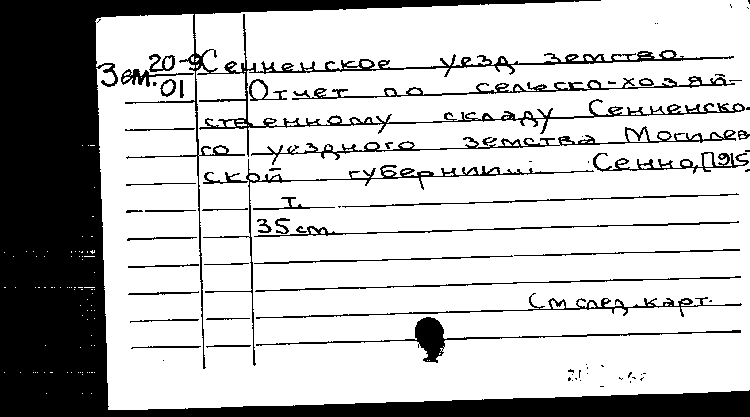 Зем. 20-9 Сенненское уезд. земство
01 Отчет по сельско-хозяй-
ственному складу Сенненско-
го уездного земства Могилев
ской губернии.: Сенно, [1915
т.
35 см.
См след. карт.